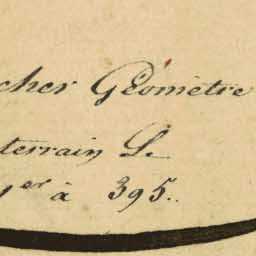 cher Géometre
terrain L.
1er à 395.